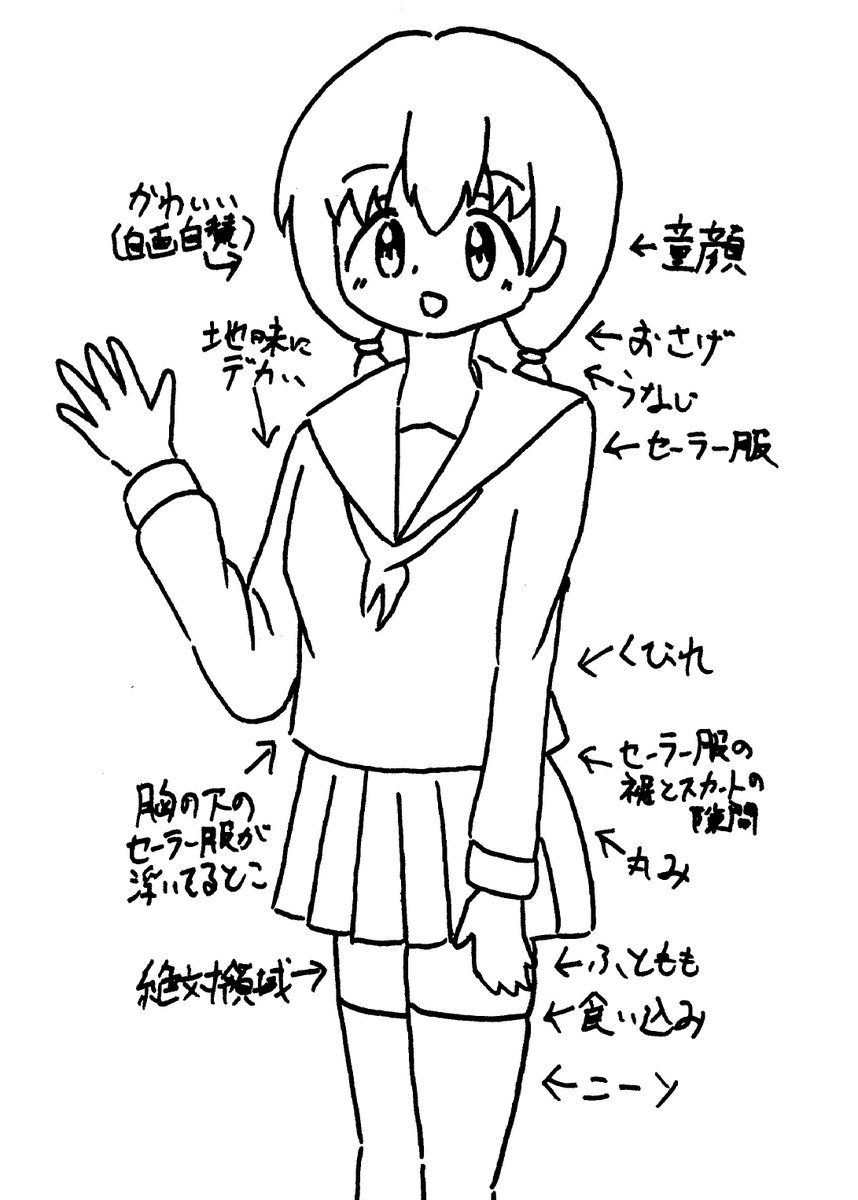 かわいい
(自画自賛)
童顔
地味に
デカい
おさげ
うなじ
セーラー服
くびれ
セーラー服の
裾とスカートの
隙間
胸の下の
セーラー服が
浮いてるとこ
丸み
絶対領域
ふともも
食い込み
ニーソ